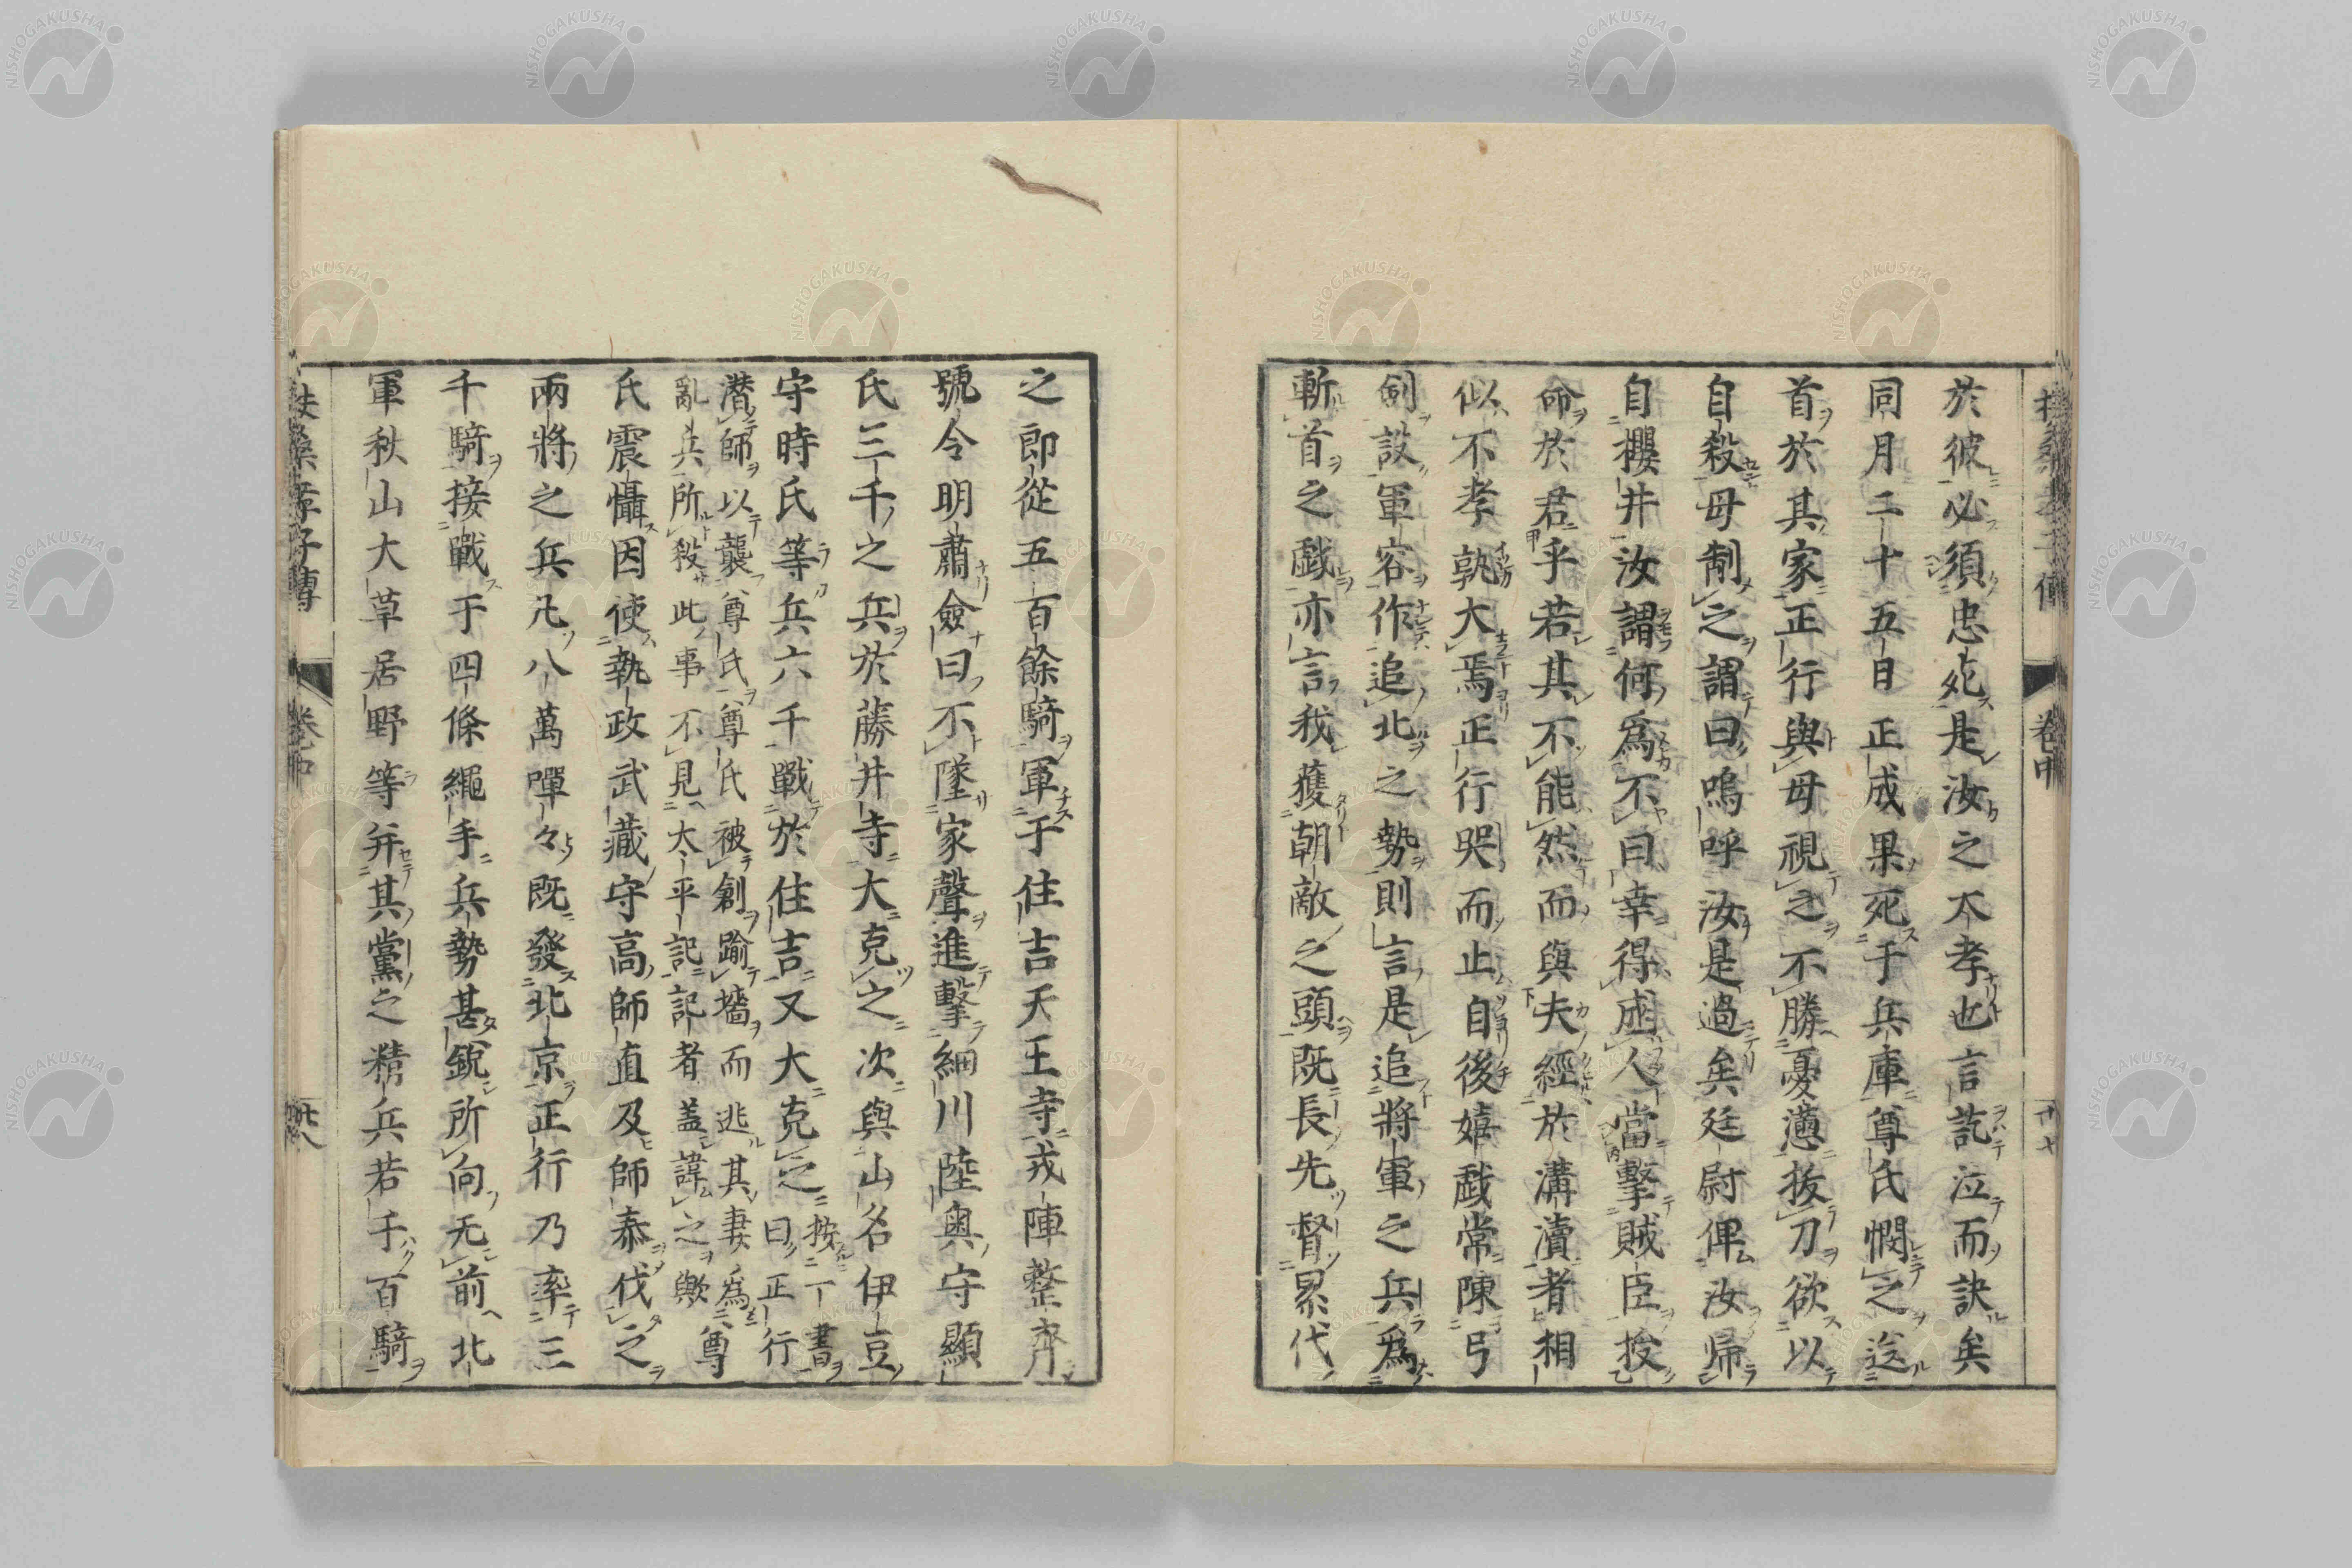 於彼必須忠死是汝之不孝也言訖泣而訣矣
同月二十五日正成果死于兵庫尊氏憫之送
首於其家正行與母視之不勝憂懣拔刀欲以
自殺母制之謂曰嗚呼汝是過矣廷尉俾汝歸
自櫻井汝謂何爲不曰幸得成人當擊賊臣授
命於君乎若其不能然而與夫經於溝瀆者相
似不孝孰大焉正行哭而止自後嬉戯常陳弓
劍設軍容作追北之勢則言是追將軍之兵爲
斬首之戯亦言我獲朝敵之頭既長先督累代
之即從五百餘騎軍于住吉天王寺戎陣整齊
號令明肅僉曰不墜家聲進擊細川陸奥守顯
氏三千之兵於藤井寺大克之次與山名伊豆
守時氏等兵六千戰於住吉又大克之
按一書
曰正行
潜師以襲尊氏尊氏被創踰墻而逃其妻爲尊
亂兵所殺此事不見太平記記者蓋諱之歟
氏震懾因使執政武藏守高師直及師泰伐之
兩將之兵凡八萬嘽々既發北京正行乃率三
千騎接戰于四條繩手兵勢甚銳所向无前北
軍秋山大草居野等并其黨之精兵若干百騎
扶桑孝子傳
卷中
卷中
廿八
NISHOGAKUSHA